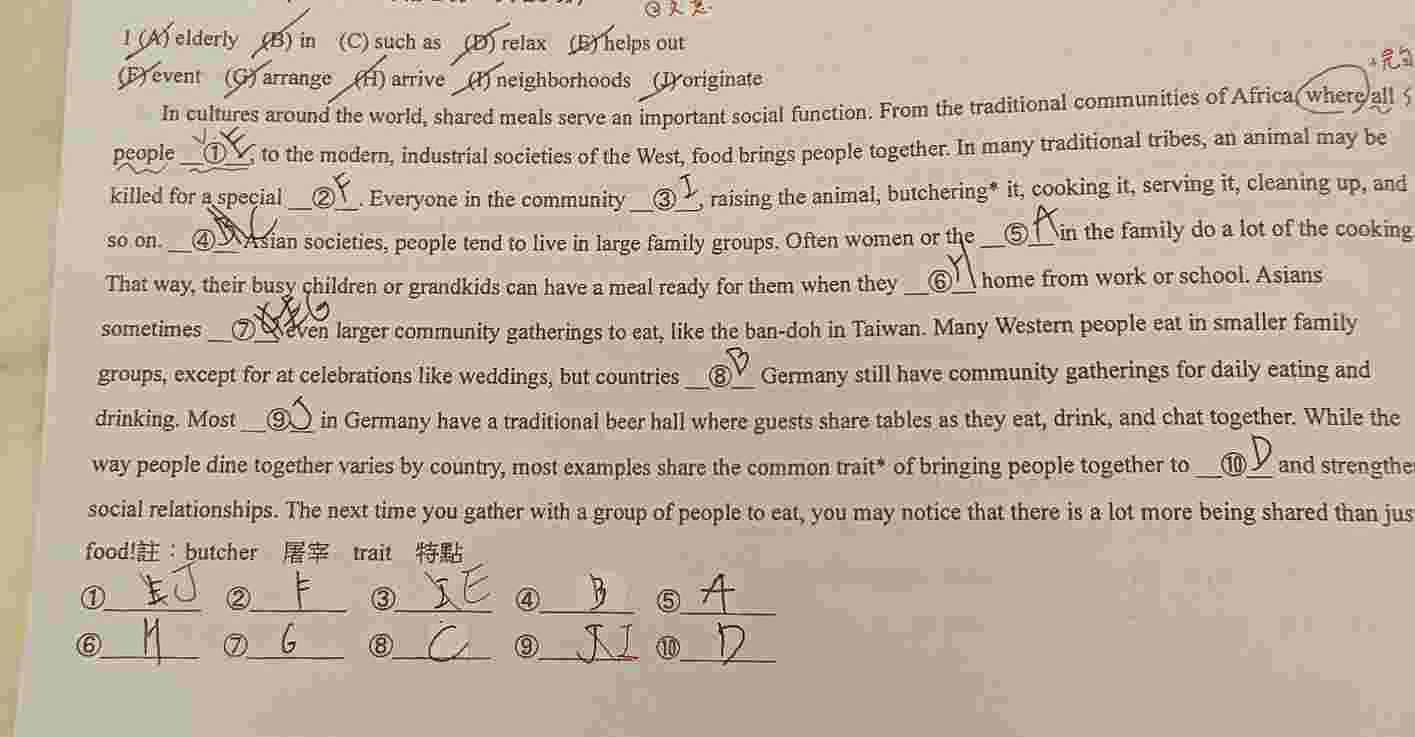 1 (A) elderly (B) in (C) such as (D) relax (E) helps out
(F) event (G) arrange (H) arrive (I) neighborhoods (J) originate
In cultures around the world, shared meals serve an important social function. From the traditional communities of Africa, where all
people ① E, to the modern, industrial societies of the West, food brings people together. In many traditional tribes, an animal may be
killed for a special ② F. Everyone in the community ③ I, raising the animal, butchering* it, cooking it, serving it, cleaning up, and
so on. ④ C Asian societies, people tend to live in large family groups. Often women or the ⑤ A in the family do a lot of the cooking
That way, their busy children or grandkids can have a meal ready for them when they ⑥ H home from work or school. Asians
sometimes ⑦ G even larger community gatherings to eat, like the ban-doh in Taiwan. Many Western people eat in smaller family
groups, except for at celebrations like weddings, but countries ⑧ B Germany still have community gatherings for daily eating and
drinking. Most ⑨ J in Germany have a traditional beer hall where guests share tables as they eat, drink, and chat together. While the
way people dine together varies by country, most examples share the common trait* of bringing people together to ⑩ D and strengthe
social relationships. The next time you gather with a group of people to eat, you may notice that there is a lot more being shared than jus
food!註：butcher 屠宰 trait 特點
① E J ② F ③ I E ④ B ⑤ A
⑥ H ⑦ G ⑧ C ⑨ J I ⑩ D